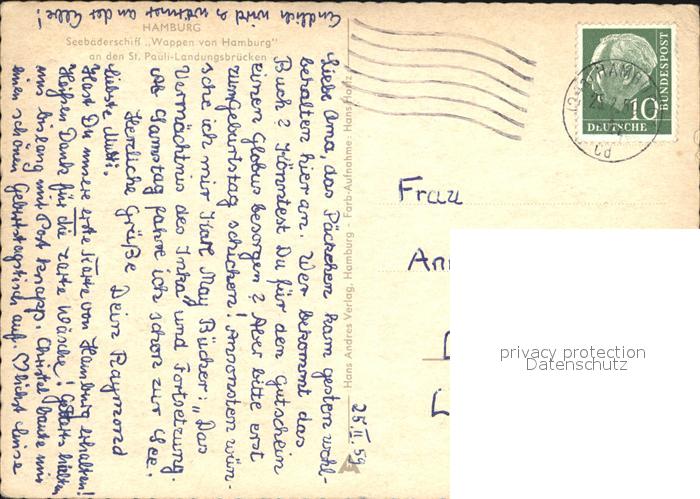 HAMBURG
Seebäderschiff „Wappen von Hamburg"
an den St. Pauli-Landungsbrücken
Liebe Oma, das Päckchen kam gestern wohl-
behalten hier an. Wer bekommt das
Buch? Könntest Du für den Gutschein
einen Globus besorgen? Aber bitte erst
zum Geburtstag schicken! Ansonsten wün-
sche ich mir Karl May Bücher: „Das
Vermächtnis des Inka" und Fortsetzung.
Ab Samstag fahre ich schon zur See.
Herzliche Grüße Dein Raymond
Liebste Mutti,
Hast Du unsere erste Karte von Hamburg erhalten?
Heißen Dank für die zarte Wäsche! hielten
uns bislang mit Post knapp. Christel baute mir
einen schönen Geburtstagstisch auf.
Endlich wird's wärmer an der Elbe!
Hans Andres Verlag, Hamburg - Farb-Aufnahme: Hans Hartz
25.II.59
10
DEUTSCHE
BUNDESPOST
HAMBURG
Frau
privacy protection
Datenschutz